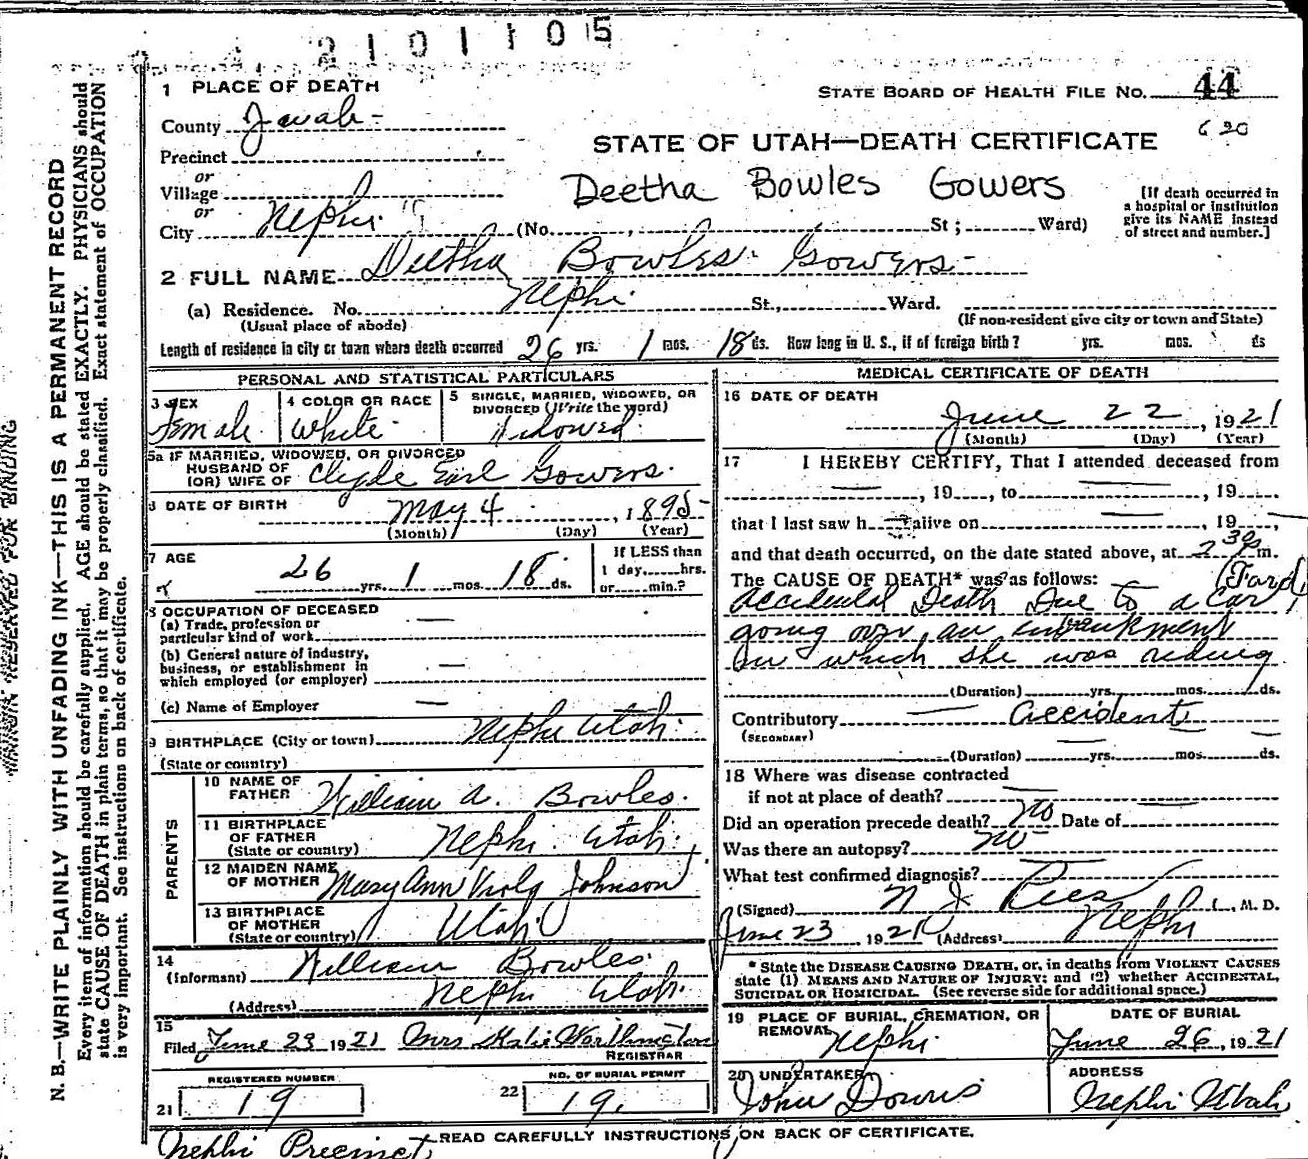 2101105
1 PLACE OF DEATH
STATE BOARD OF HEALTH FILE NO. 44
County Juab -
620
STATE OF UTAH—DEATH CERTIFICATE
Precinct
or
Village
Deetha Bowles Gowers
[If death occurred in
a hospital or institution
give its NAME instead
of street and number.]
or
City Nephi (No. , St ; Ward)
2 FULL NAME Deetha Bowles Gowers -
(a) Residence. No. Nephi St., Ward.
(Usual place of abode)
(If non-resident give city or town and State)
Length of residence in city or town where death occurred 26 yrs. 1 mos. 18 ds. How long in U. S., if of foreign birth? yrs. mos. ds
PERSONAL AND STATISTICAL PARTICULARS
3 SEX
Female
4 COLOR OR RACE
White
5 SINGLE, MARRIED, WIDOWED, OR
DIVORCED (Write the word)
Widowed
5a IF MARRIED, WIDOWED, OR DIVORCED
HUSBAND OF
(OR) WIFE OF Clyde Earl Gowers.
6 DATE OF BIRTH May 4 , 1895 -
(Month) (Day) (Year)
7 AGE
26 yrs. 1 mos. 18 ds.
If LESS than
1 day, hrs.
or min.?
8 OCCUPATION OF DECEASED
(a) Trade, profession or
particular kind of work
(b) General nature of industry,
business, or establishment in
which employed (or employer)
(c) Name of Employer
9 BIRTHPLACE (City or town) Nephi Utah.
(State or country)
PARENTS
10 NAME OF
FATHER William A. Bowles.
11 BIRTHPLACE
OF FATHER
(State or country) Nephi. Utah.
12 MAIDEN NAME
OF MOTHER Mary Ann Viola Johnson
13 BIRTHPLACE
OF MOTHER
(State or country) Utah
14
(Informant) William Bowles.
(Address) Nephi Utah.
15
Filed June 23 1921 Mrs Katie Worthington
REGISTRAR
REGISTERED NUMBER
21 19
NO. OF BURIAL PERMIT
22 19.
MEDICAL CERTIFICATE OF DEATH
16 DATE OF DEATH
June 22 , 1921
(Month) (Day) (Year)
17 I HEREBY CERTIFY, That I attended deceased from
, 19 , to , 19
that I last saw h alive on , 19
and that death occurred, on the date stated above, at 2 30 m.
The CAUSE OF DEATH* was as follows: (Ford)
Accidental Death Due To a Car
going over an embankment
in which she was riding
(Duration) yrs. mos. ds.
Contributory Accident
(SECONDARY)
(Duration) yrs. mos. ds.
18 Where was disease contracted
if not at place of death?
Did an operation precede death? No Date of
Was there an autopsy? No -
What test confirmed diagnosis?
(Signed) N J Rees , M. D.
June 23 1921 (Address) Nephi
* State the DISEASE CAUSING DEATH, or, in deaths from VIOLENT CAUSES
state (1) MEANS AND NATURE OF INJURY; and (2) whether ACCIDENTAL,
SUICIDAL OR HOMICIDAL. (See reverse side for additional space.)
19 PLACE OF BURIAL, CREMATION, OR
REMOVAL Nephi.
DATE OF BURIAL
June 26, 1921
20 UNDERTAKER
John Downs
ADDRESS
Nephi Utah
READ CAREFULLY INSTRUCTIONS ON BACK OF CERTIFICATE.
Nephi Precinct
MARGIN RESERVED FOR BINDING
N. B.—WRITE PLAINLY WITH UNFADING INK—THIS IS A PERMANENT RECORD
Every item of information should be carefully supplied. AGE should be stated EXACTLY. PHYSICIANS should
state CAUSE OF DEATH in plain terms, so that it may be properly classified. Exact statement of OCCUPATION
is very important. See instructions on back of certificate.